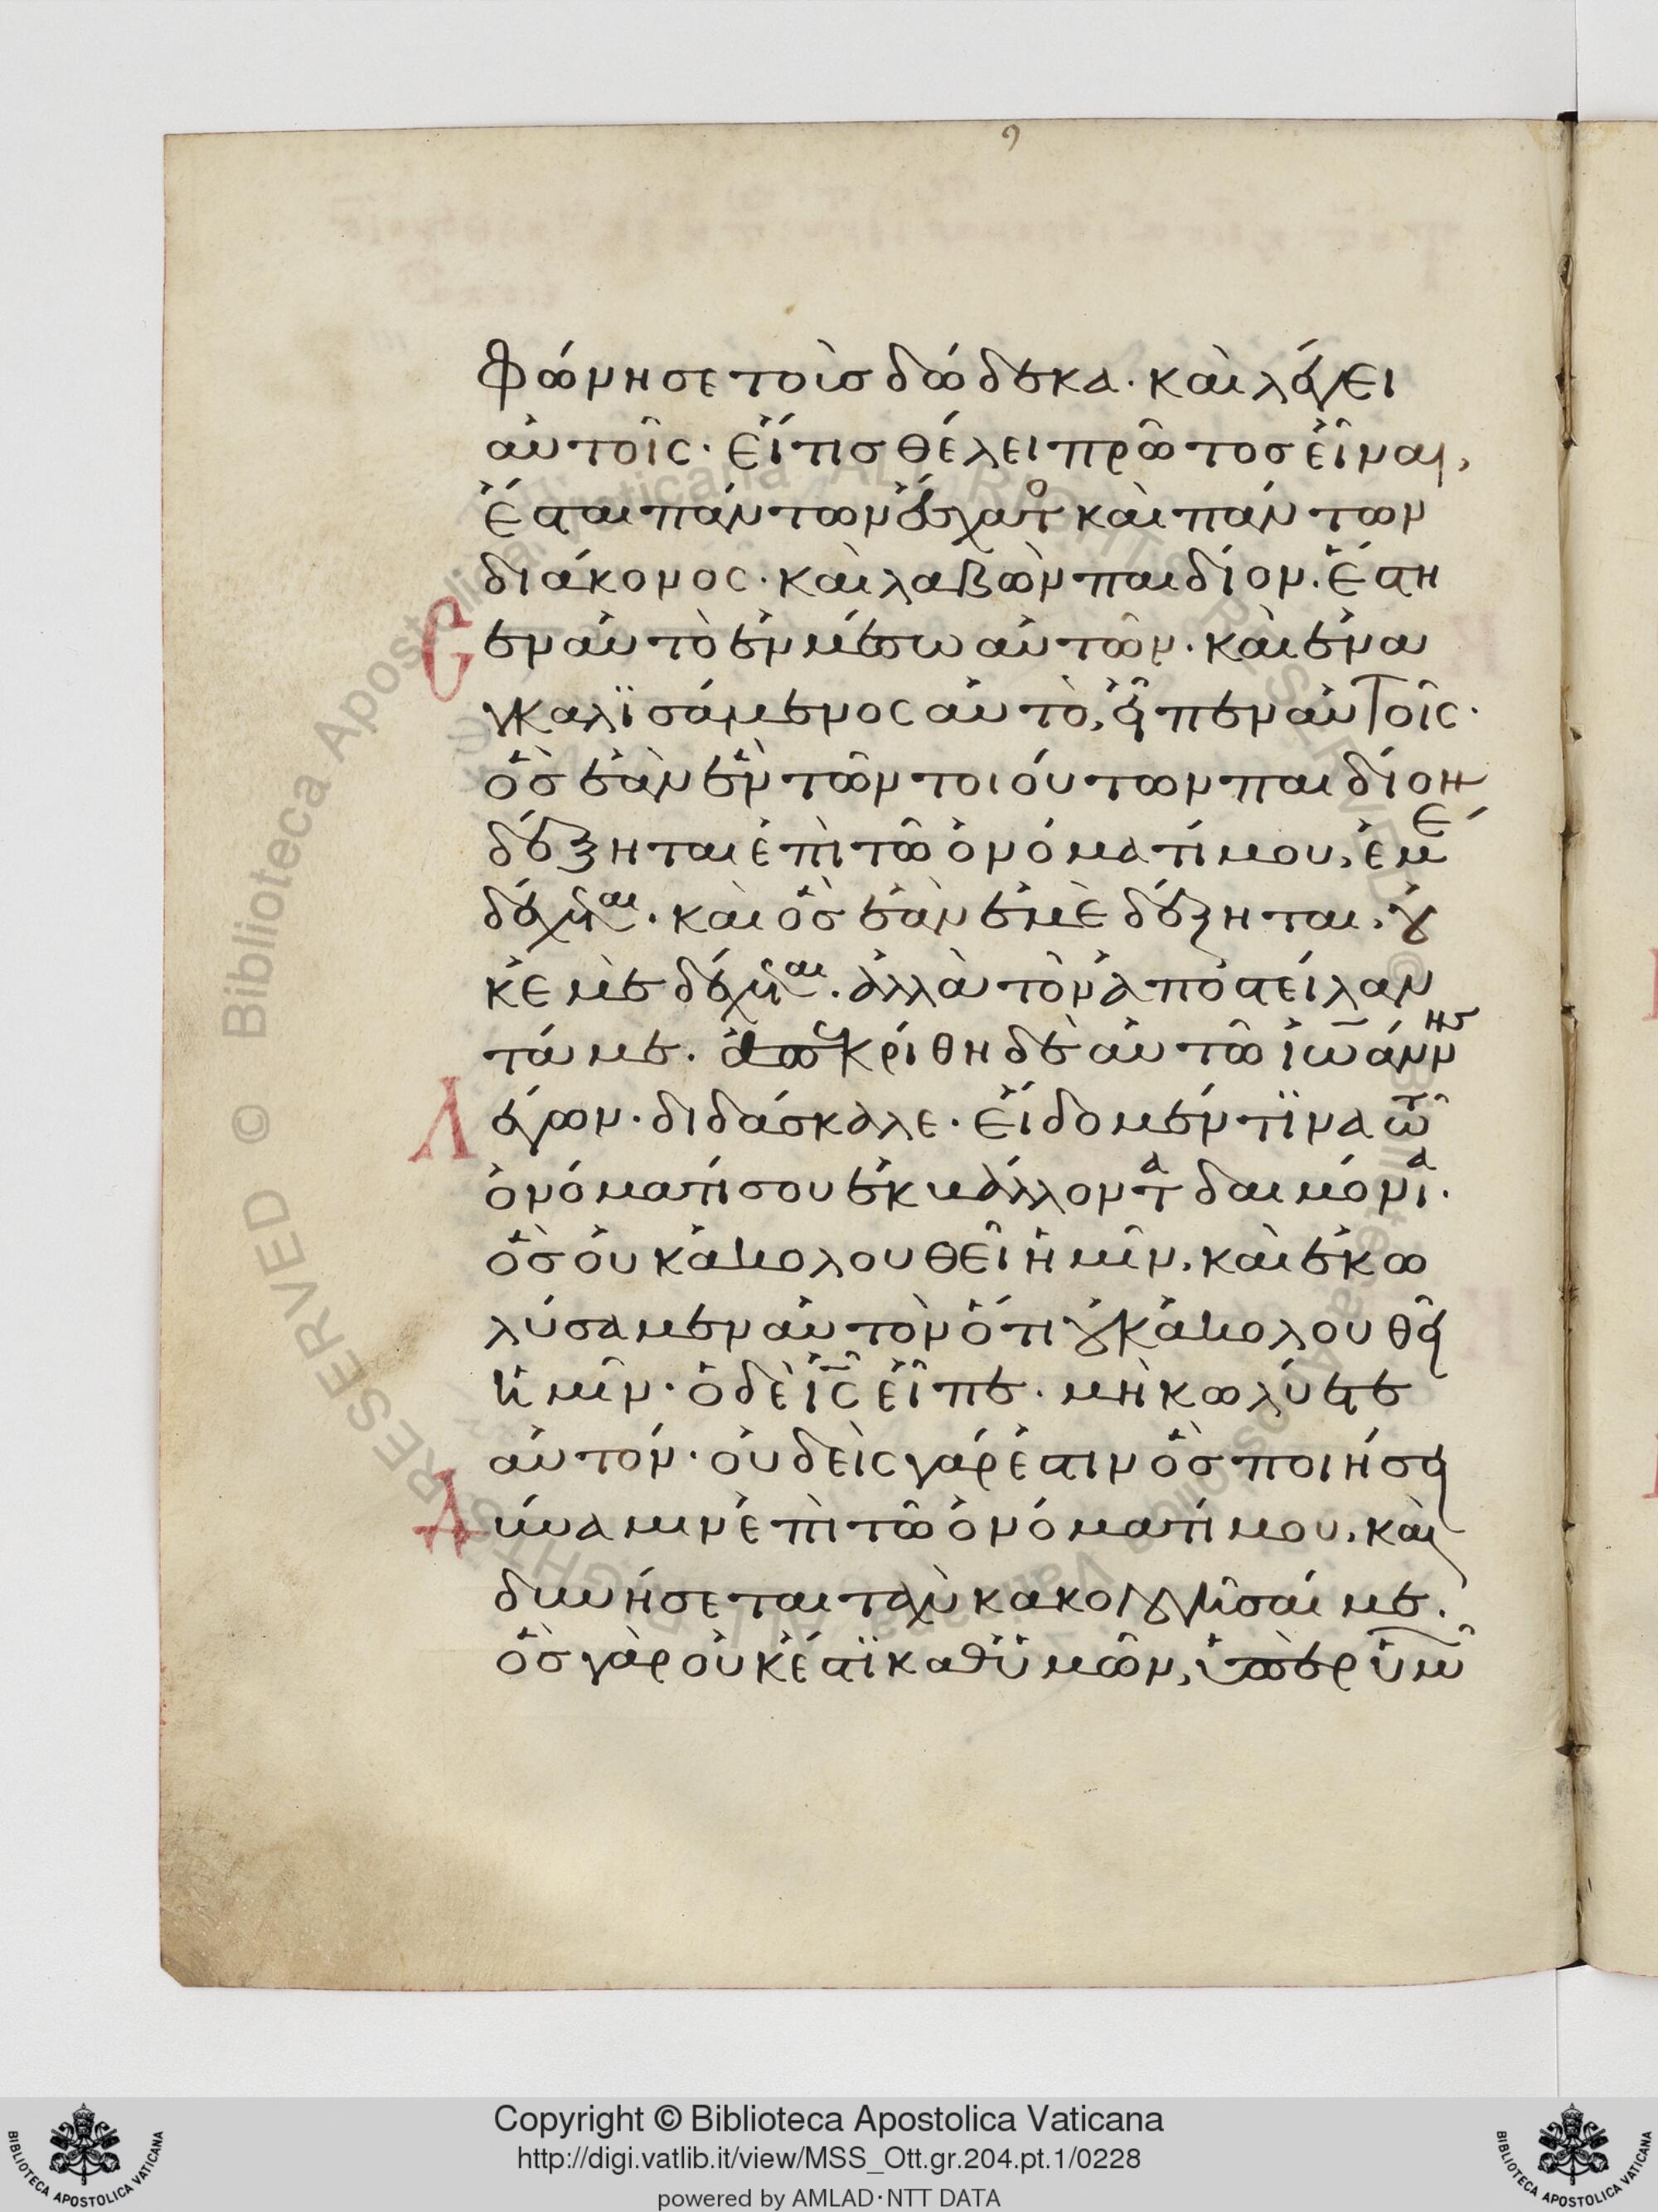 φώνησε τοὺς δώδεκα· καὶ λέγει
αὐτοῖς· εἴ τις θέλει πρῶτος εἶναι,
ἔσται πάντων ἔσχατος καὶ πάντων
διάκονος· καὶ λαβὼν παιδίον. ἔστη
σεν αὐτὸ ἐν μέσω αὐτῶν. καὶ ἐνα
γκαλϊσάμενος αὐτὸ, εἶπεν αὐτοῖς·
ὃς ἐὰν ἓν τῶν τοιούτων παιδίων
δέξηται ἐπὶ τῶ ὀνόματί μου, ἐμὲ
δέχεται. καὶ ὃς ἐὰν ἐμὲ δέξηται, οὐ
κ ἐμὲ δέχεται. ἀλλὰ τὸν ἀποστείλαν
τά με. ἀπεκρίθη δὲ αὐτῶ ἰωάννης
λέγων· διδάσκαλε· εἴδομέν τϊνα τῶ
ὀνόματί σου ἐκβάλλοντα δαιμόνια.
ὃς οὐκ ἀκολουθεῖ ἡμῖν, καὶ ἐκω
λύσαμεν αὐτὸν ὅτι οὐκ ἀκολουθεῖ
ἡμῖν· ὁ δὲ ἰς εἶπε. μὴ κωλύετε
αὐτόν· οὐδεὶς γάρ ἐστιν ὃς ποιήσει
δύναμιν ἐπὶ τῶ ὀνόματί μου, καὶ
δυνήσεται ταχὺ κακολογῆσαί με.
ὃς γὰρ οὐκ ἔστϊ καθ' ὑμῶν, ὑπὲρ ὑμῶν
Copyright © Biblioteca Apostolica Vaticana
http://digi.vatlib.it/view/MSS_Ott.gr.204.pt.1/0228
powered by AMLAD·NTT DATA
BIBLIOTECA APOSTOLICA VATICANA
BIBLIOTECA APOSTOLICA VATICANA